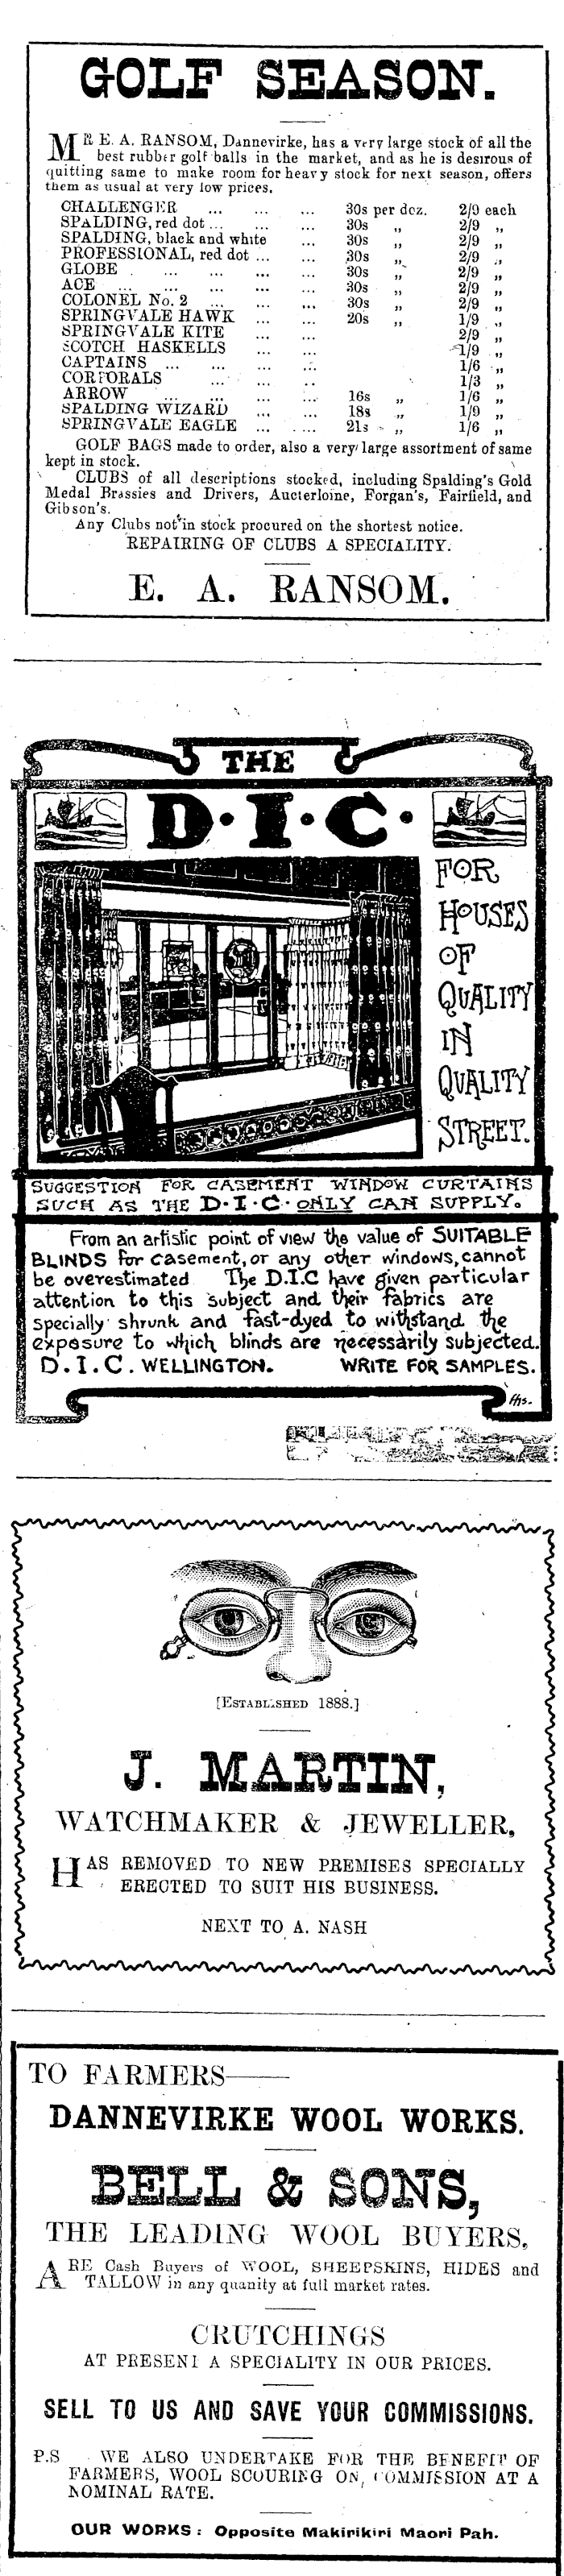 GOLF SEASON.
MR E. A. RANSOM, Dannevirke, has a very large stock of all the
best rubber golf balls in the market, and as he is desirous of
quitting same to make room for heavy stock for next season, offers
them as usual at very low prices.
CHALLENGER ... ... ... 30s per doz. 2/9 each
SPALDING, red dot ... ... ... 30s „ 2/9 „
SPALDING, black and white ... 30s „ 2/9 „
PROFESSIONAL, red dot ... ... 30s „ 2/9 „
GLOBE . ... ... ... ... 30s „ 2/9 „
ACE ... ... ... ... ... 30s „ 2/9 „
COLONEL No. 2 ... ... ... 30s „ 2/9 „
SPRINGVALE HAWK ... ... 20s „ 1/9 „
SPRINGVALE KITE ... ... 2/9 „
SCOTCH HASKELLS ... ... 1/9 „
CAPTAINS ... ... ... ... 1/6 „
CORPORALS ... ... .. 1/3 „
ARROW ... ... ... ... 16s „ 1/6 „
SPALDING WIZARD ... ... 18s „ 1/9 „
SPRINGVALE EAGLE ... ... 21s „ 1/6 „
GOLF BAGS made to order, also a very large assortment of same
kept in stock.
CLUBS of all descriptions stocked, including Spalding's Gold
Medal Brassies and Drivers, Aucterloine, Forgan's, Fairfield, and
Gibson's.
Any Clubs not in stock procured on the shortest notice.
REPAIRING OF CLUBS A SPECIALITY.
E. A. RANSOM.
THE
D·I·C·
FOR
HOUSES
OF
QUALITY
IN
QUALITY
STREET.
SUGGESTION FOR CASEMENT WINDOW CURTAINS
SUCH AS THE D·I·C· ONLY CAN SUPPLY.
From an artistic point of view the value of SUITABLE
BLINDS for casement, or any other windows, cannot
be overestimated The D.I.C have given particular
attention to this subject and their fabrics are
specially shrunk and fast-dyed to withstand the
exposure to which blinds are necessarily subjected.
D.I.C. WELLINGTON. WRITE FOR SAMPLES.
[ESTABLISHED 1888.]
J. MARTIN,
WATCHMAKER & JEWELLER,
HAS REMOVED TO NEW PREMISES SPECIALLY
ERECTED TO SUIT HIS BUSINESS.
NEXT TO A. NASH
TO FARMERS——
DANNEVIRKE WOOL WORKS.
BELL & SONS,
THE LEADING WOOL BUYERS,
ARE Cash Buyers of WOOL, SHEEPSKINS, HIDES and
TALLOW in any quanity at full market rates.
CRUTCHINGS
AT PRESENT A SPECIALITY IN OUR PRICES.
SELL TO US AND SAVE YOUR COMMISSIONS.
P.S WE ALSO UNDERTAKE FOR THE BENEFIT OF
FARMERS, WOOL SCOURING ON COMMISSION AT A
NOMINAL RATE.
OUR WORKS: Opposite Makirikiri Maori Pah.